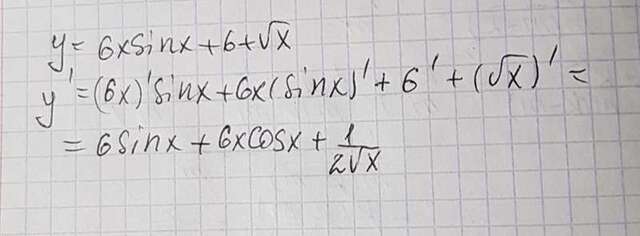 y = 6x sinx + 6 + √x
y' = (6x)' sinx + 6x(sinx)' + 6' + (√x)' =
= 6sinx + 6xcosx + 1/(2√x)